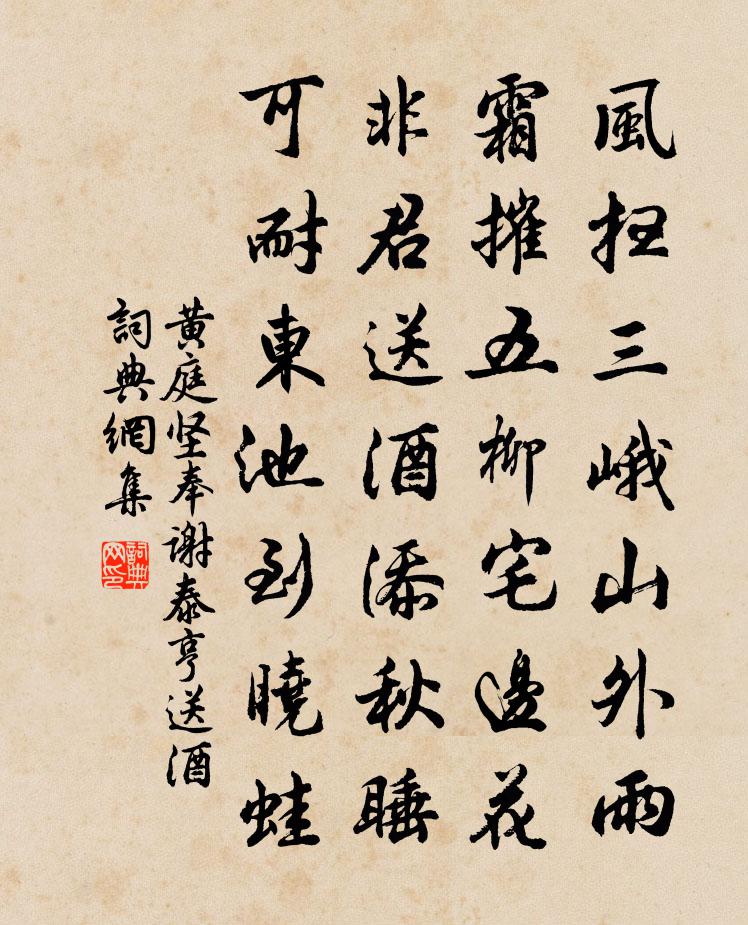 風扫三峨山外雨
霜摧五柳宅邊花
非君送酒添秋睡
可耐東池到曉蛙
黄庭坚奉谢泰亨送酒
詞典網集
詞典网印